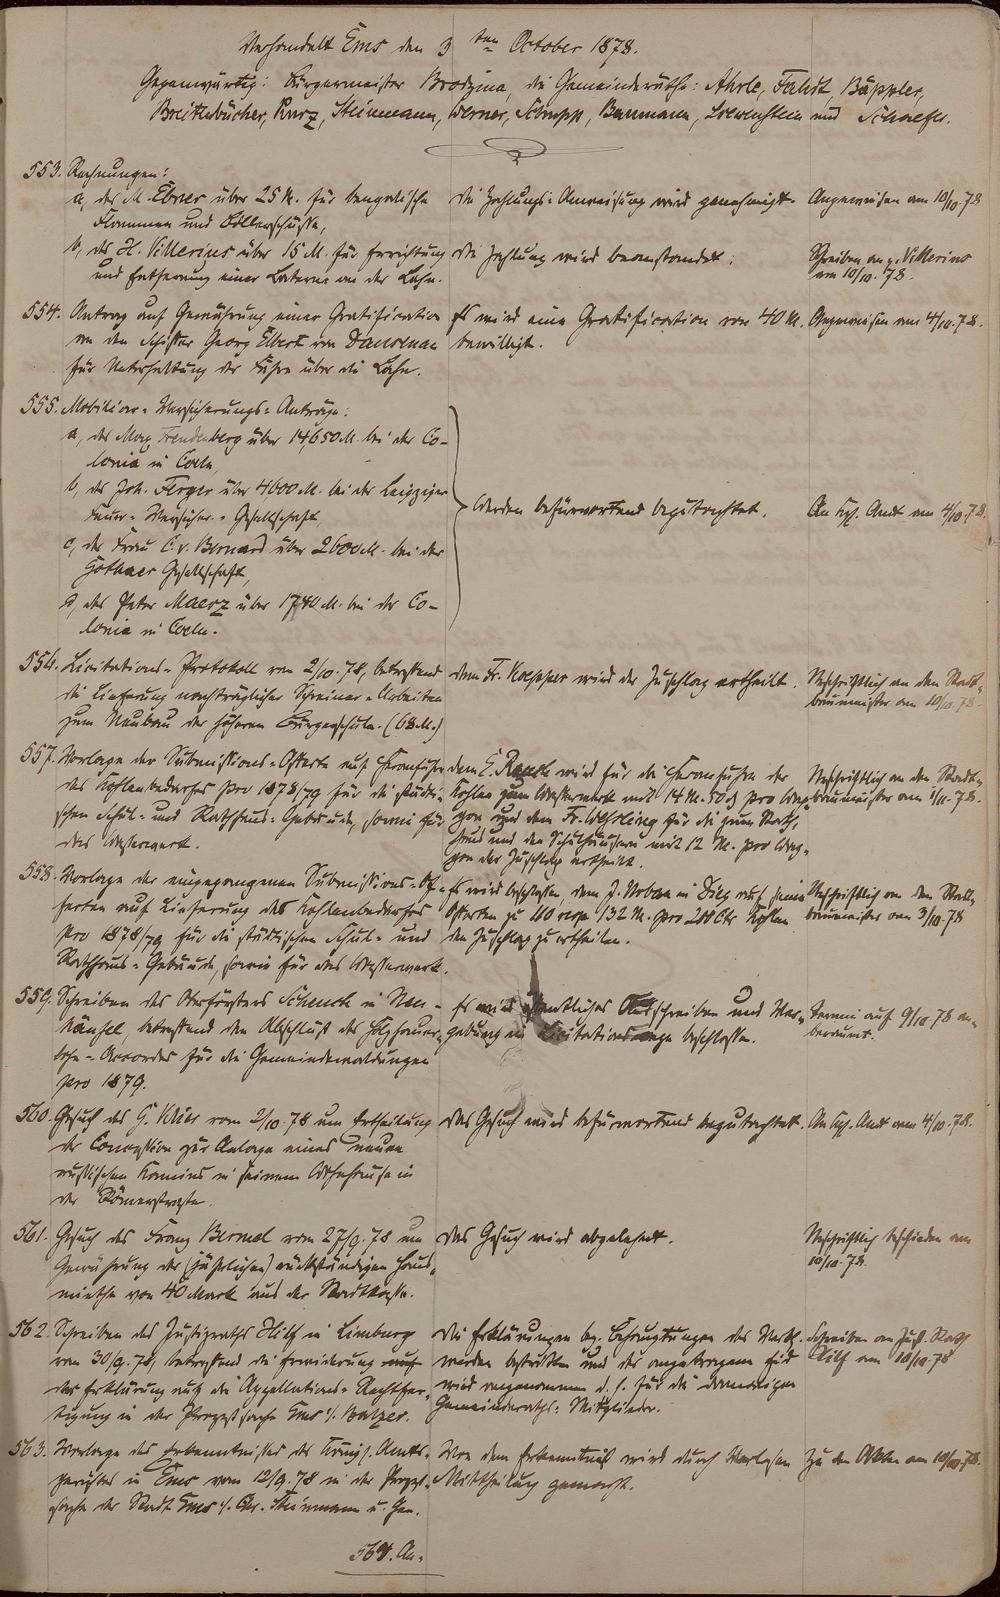 Verhandelt Ems den 3ten October 1878.
Gegenwärtig: Bürgermeister Brodzina, die Gemeinderäthe: Ahrle, Faludt, Bäppler,
Breitenbücher, Kurz, Steinmann, Werner, Schupp, Baumann, Loewenstein und Schaefer.
553. Rechnungen:
a, des M. Ebner über 25 M. für bengalische
Flammen und Böllerschüsse,
Die Zahlungs-Anweisung wird genehmigt.
Angewiesen am 10/10.78
b, des H. Villerius über 15 M. für Errichtung
und Entfernung einer Laterne an der Lahn.
Die Zahlung wird beanstandet.
Schreiben an p. Villerius
am 10/10.78.
554. Antrag auf Gewährung einer Gratification
an den Schiffer Georg Elbert von Dausenau
für Unterhaltung der Fähre über die Lahn.
Es wird eine Gratification von 40 M.
bewilligt.
Angewiesen am 4/10.78.
555. Mobiliar-Versicherungs-Anträge:
a, des Max Freudenberg über 14,650 M. bei der Co-
lonia in Coeln,
b, des Joh. Ferger über 4600 M. bei der Leipziger
Feuer-Versicher.-Gesellschaft,
c, der Frau C. v. Bernard über 2600 M. bei der
Gothaer Gesellschaft,
d, des Peter Maerz über 1740 M. bei der Co-
lonia in Coeln.
Werden befürwortend begutachtet.
An Kgl. Amt am 4/10.78.
556. Licitations-Protokoll vom 2/10.78, betreffend
die Lieferung nachträglicher Schreiner-Arbeiten
zum Neubau der höheren Bürgerschule. (68 M.)
Dem Fr. Koepper wird der Zuschlag ertheilt.
Abschriftlich an den Stadt-
baumeister am 10/10.78.
557. Vorlage der Submissions-Offerte auf Heranfuhr
des Kohlenbedarfes pro 1878/79 für die städti-
schen Schul- und Rathhaus-Gebäude, sowie für
das Wasserwerk.
Dem E. Rauch wird für die Heranfuhr der
Kohlen zum Wasserwerk mit 14 M. 50 ₰ pro Wag-
gon und dem Fr. Wehrling für die zum Rath-
haus und den Schulhäusern mit 12 M. pro Wag-
gon der Zuschlag ertheilt.
Abschriftlich an den Stadt-
baumeister am 4/10.78.
558. Vorlage der eingegangenen Submissions-Of-
ferten auf Lieferung des Kohlenbedarfes
pro 1878/79 für die städtischen Schul- und
Rathhaus-Gebäude, sowie für das Wasserwerk.
Es wird beschlossen, dem J. in Diez auf seine
Offerten zu 110 resp. 132 M. pro 200 Ctr. Kohlen
den Zuschlag zu ertheilen.
Abschriftlich an den Stadt-
baumeister am 3/10.78
559. Schreiben des Oberförsters Schenck in Neu-
häusel betreffend den Abschluß des Holzhauer-
lohn-Accordes für die Gemeindewaldungen
pro 1879.
Es wird öffentliches Ausschreiben und Ver-
gebung im Licitationswege beschlossen.
Termin auf 9/10.78 an-
beraumt.
560. Gesuch des G. vom 2/10.78 um Ertheilung
der Concession zur Anlage eines neuen
russischen Kamins in seinem Wohnhause in
der Römerstraße.
Das Gesuch wird befürwortend begutachtet.
An Kgl. Amt am 4/10.78.
561. Gesuch des Franz Bermel vom 27/9.78 um
Gewährung der (jährlichen) rückständigen Haus-
miethe von 40 Mark aus der Stadtkasse.
Das Gesuch wird abgelehnt.
Abschriftlich beschieden am
10/10.78.
562. Schreiben des Justizraths Hilf in Limburg
vom 30/9.78, betreffend die Erwiderung auf
der Erklärung auf die Appellations-Rechtfer-
tigung in der Prozeßsache Ems ./. Balzer.
Die Erklärungen bez. Behauptungen des
werden bestritten und der angetragene Eid
wird angenommen d. h. für die damaligen
Gemeinderaths-Mitglieder.
Schreiben an Just. Rath
Hilf am 10/10.78
563. Vorlage des Erkenntnisses des Königl. Amts-
gerichtes in Ems vom 12/9.78 in der Prozeß-
sache der Stadt Ems ./. Chr. Steinmann u. Gen.
Von dem Erkenntniß wird durch Verlesen
Mittheilung gemacht.
Zu den Akten am 10/10.78.
564. An-